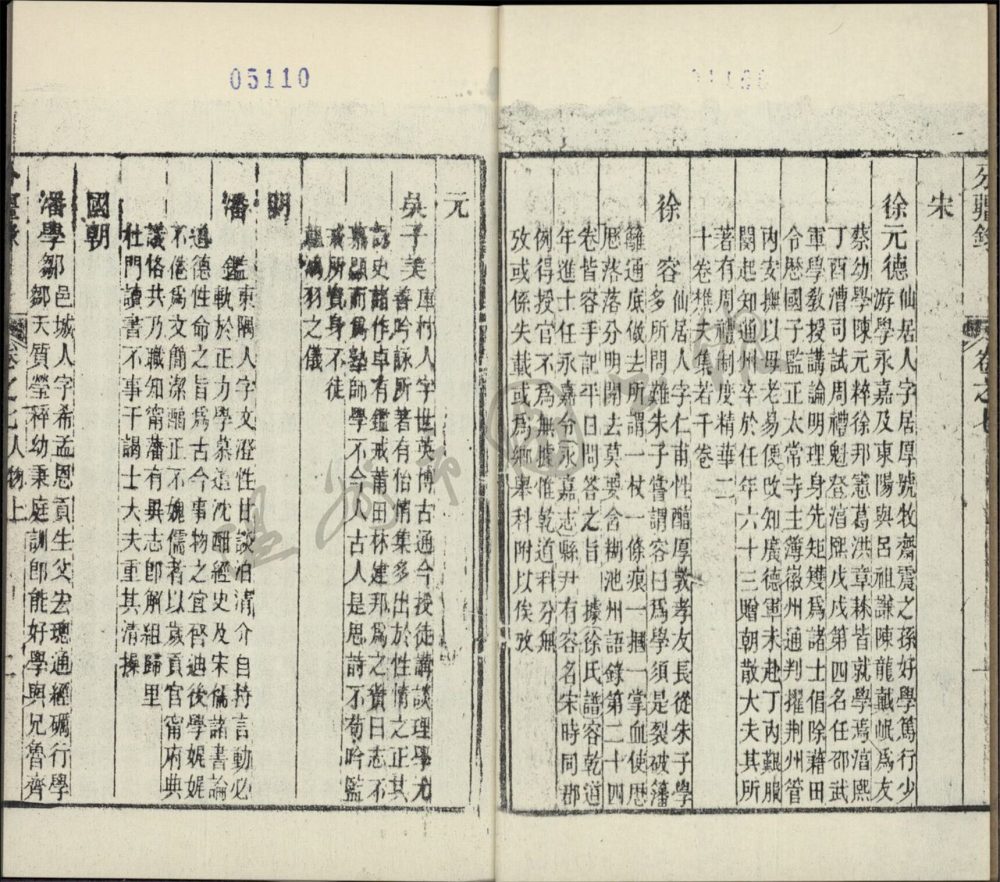 05110
分疆錄 卷之七
宋
徐元德 仙居人字居厚號牧齋震之孫好學篤行少
游學永嘉及東陽與呂祖謙陳龍戴岷為友
蔡幼學陳元粹徐邦憲葛洪章棶皆就學焉淳熙
丁酉漕司試周禮魁登淳熙戊戌第四名任邵武
軍學教授講論明理身先矩矱為諸士倡除藉田
令歷國子監正太常寺主簿徽州通判擢荆州管
內安撫以母老易便攺知廣德軍未赴丁內艱服
闋起知通州卒於任年六十三贈朝散大夫其所
著有周禮制度精華二
十卷樵夫集若干卷
徐 容 仙居人字仁甫性醕厚敦孝友長從朱子學
多所問難朱子嘗謂容曰為學須是裂破藩
籬通底做去所謂一杖一條痕一摑一掌血使歷
歷落落分明開去莫要含糊池州語錄第二十四
卷皆容手記平日問答之旨 據徐氏譜容乾道
年進士任永嘉令永嘉志縣尹有容名宋時同郡
例得授官不為無據惟乾道科分無
攷或係失載或為鄉舉科附以俟攷
元
吳子美 庫村人字世英博古通今授徒講談理學尤
善吟詠所著有伯情集多出於性情之正其
詠史諸作卓有鑑戒莆田林建邦為之贊曰志不
慕顯而為塾師學不今人古人是思詩不苟吟監
戒所寶身不徒
鴻羽之儀
明
潘 鑑 東隅人字文澄性甘談泊清介自持言動必
軌於正力學慕道沈酣經史及宋儒諸書論
道德性命之旨為古今事物之宜啓迪後學娓娓
不倦為文簡潔醕正不媿儒者以歲貢官甯府典
議恪共乃職知甯藩有異志卽解組歸里
杜門讀書不事干謁士大夫重其清操
國朝
潘學鄒 邑城人字希孟恩貢生父宏璁通經礪行學
鄒天質瑩粹幼秉庭訓卽能好學與兄魯齊
卷之七人物上